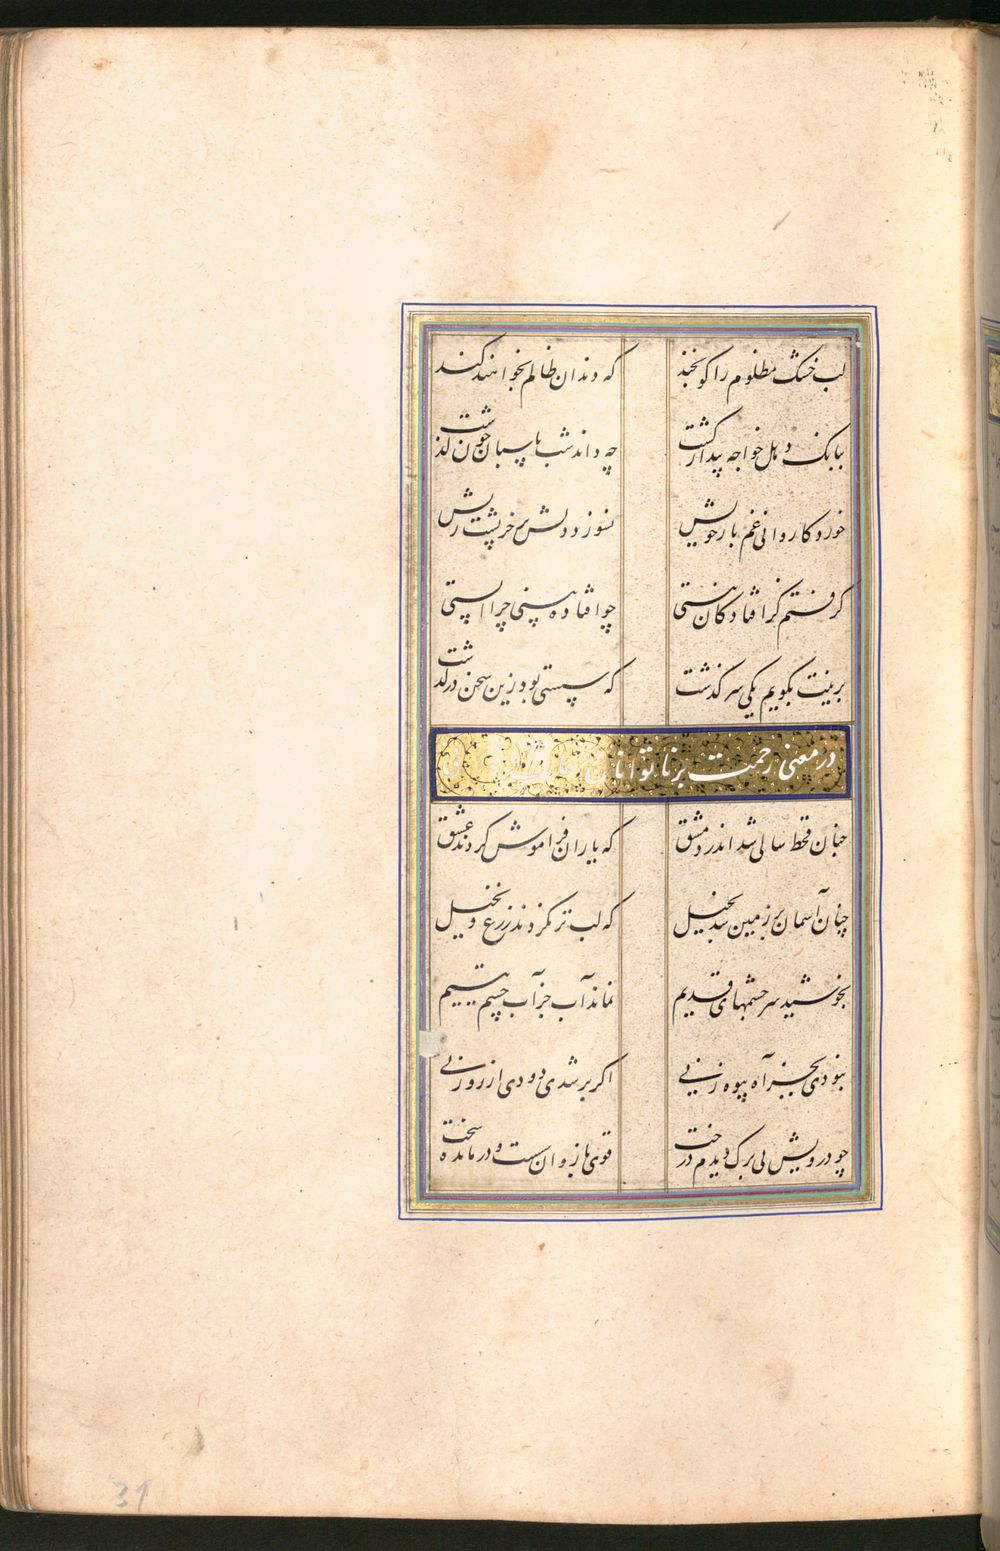 لب خشک مظلوم را کو بخند که دندان ظالم بخواهند کند
ببانک دهل خواجه بیدار کشت چه داند شب پاسبان چون کذشت
خورد کاروانی غم بار خویش نسوزد دلش بر خر پشت ریش
کرفتم کز افتادکان نیستی چو افتاده بینی چرا ایستی
برینت بکویم یکی سرکذشت که سستی بود زین سخن درکذشت
در معنی رحمت بر ناتوانان
چنان قحط سالی شد اندر دمشق که یاران فراموش کردند عشق
چنان آسمان بر زمین شد بخیل که لب تر نکردند زرع و نخیل
بخوشید سرچشمهای قدیم نماند آب جز آب چشم یتیم
نبودی بجز آه بیوه زنی اکر بر شدی دودی از روزنی
چو درویش بی برک دیدم درخت قوی بازوان سست و درمانده سخت
31